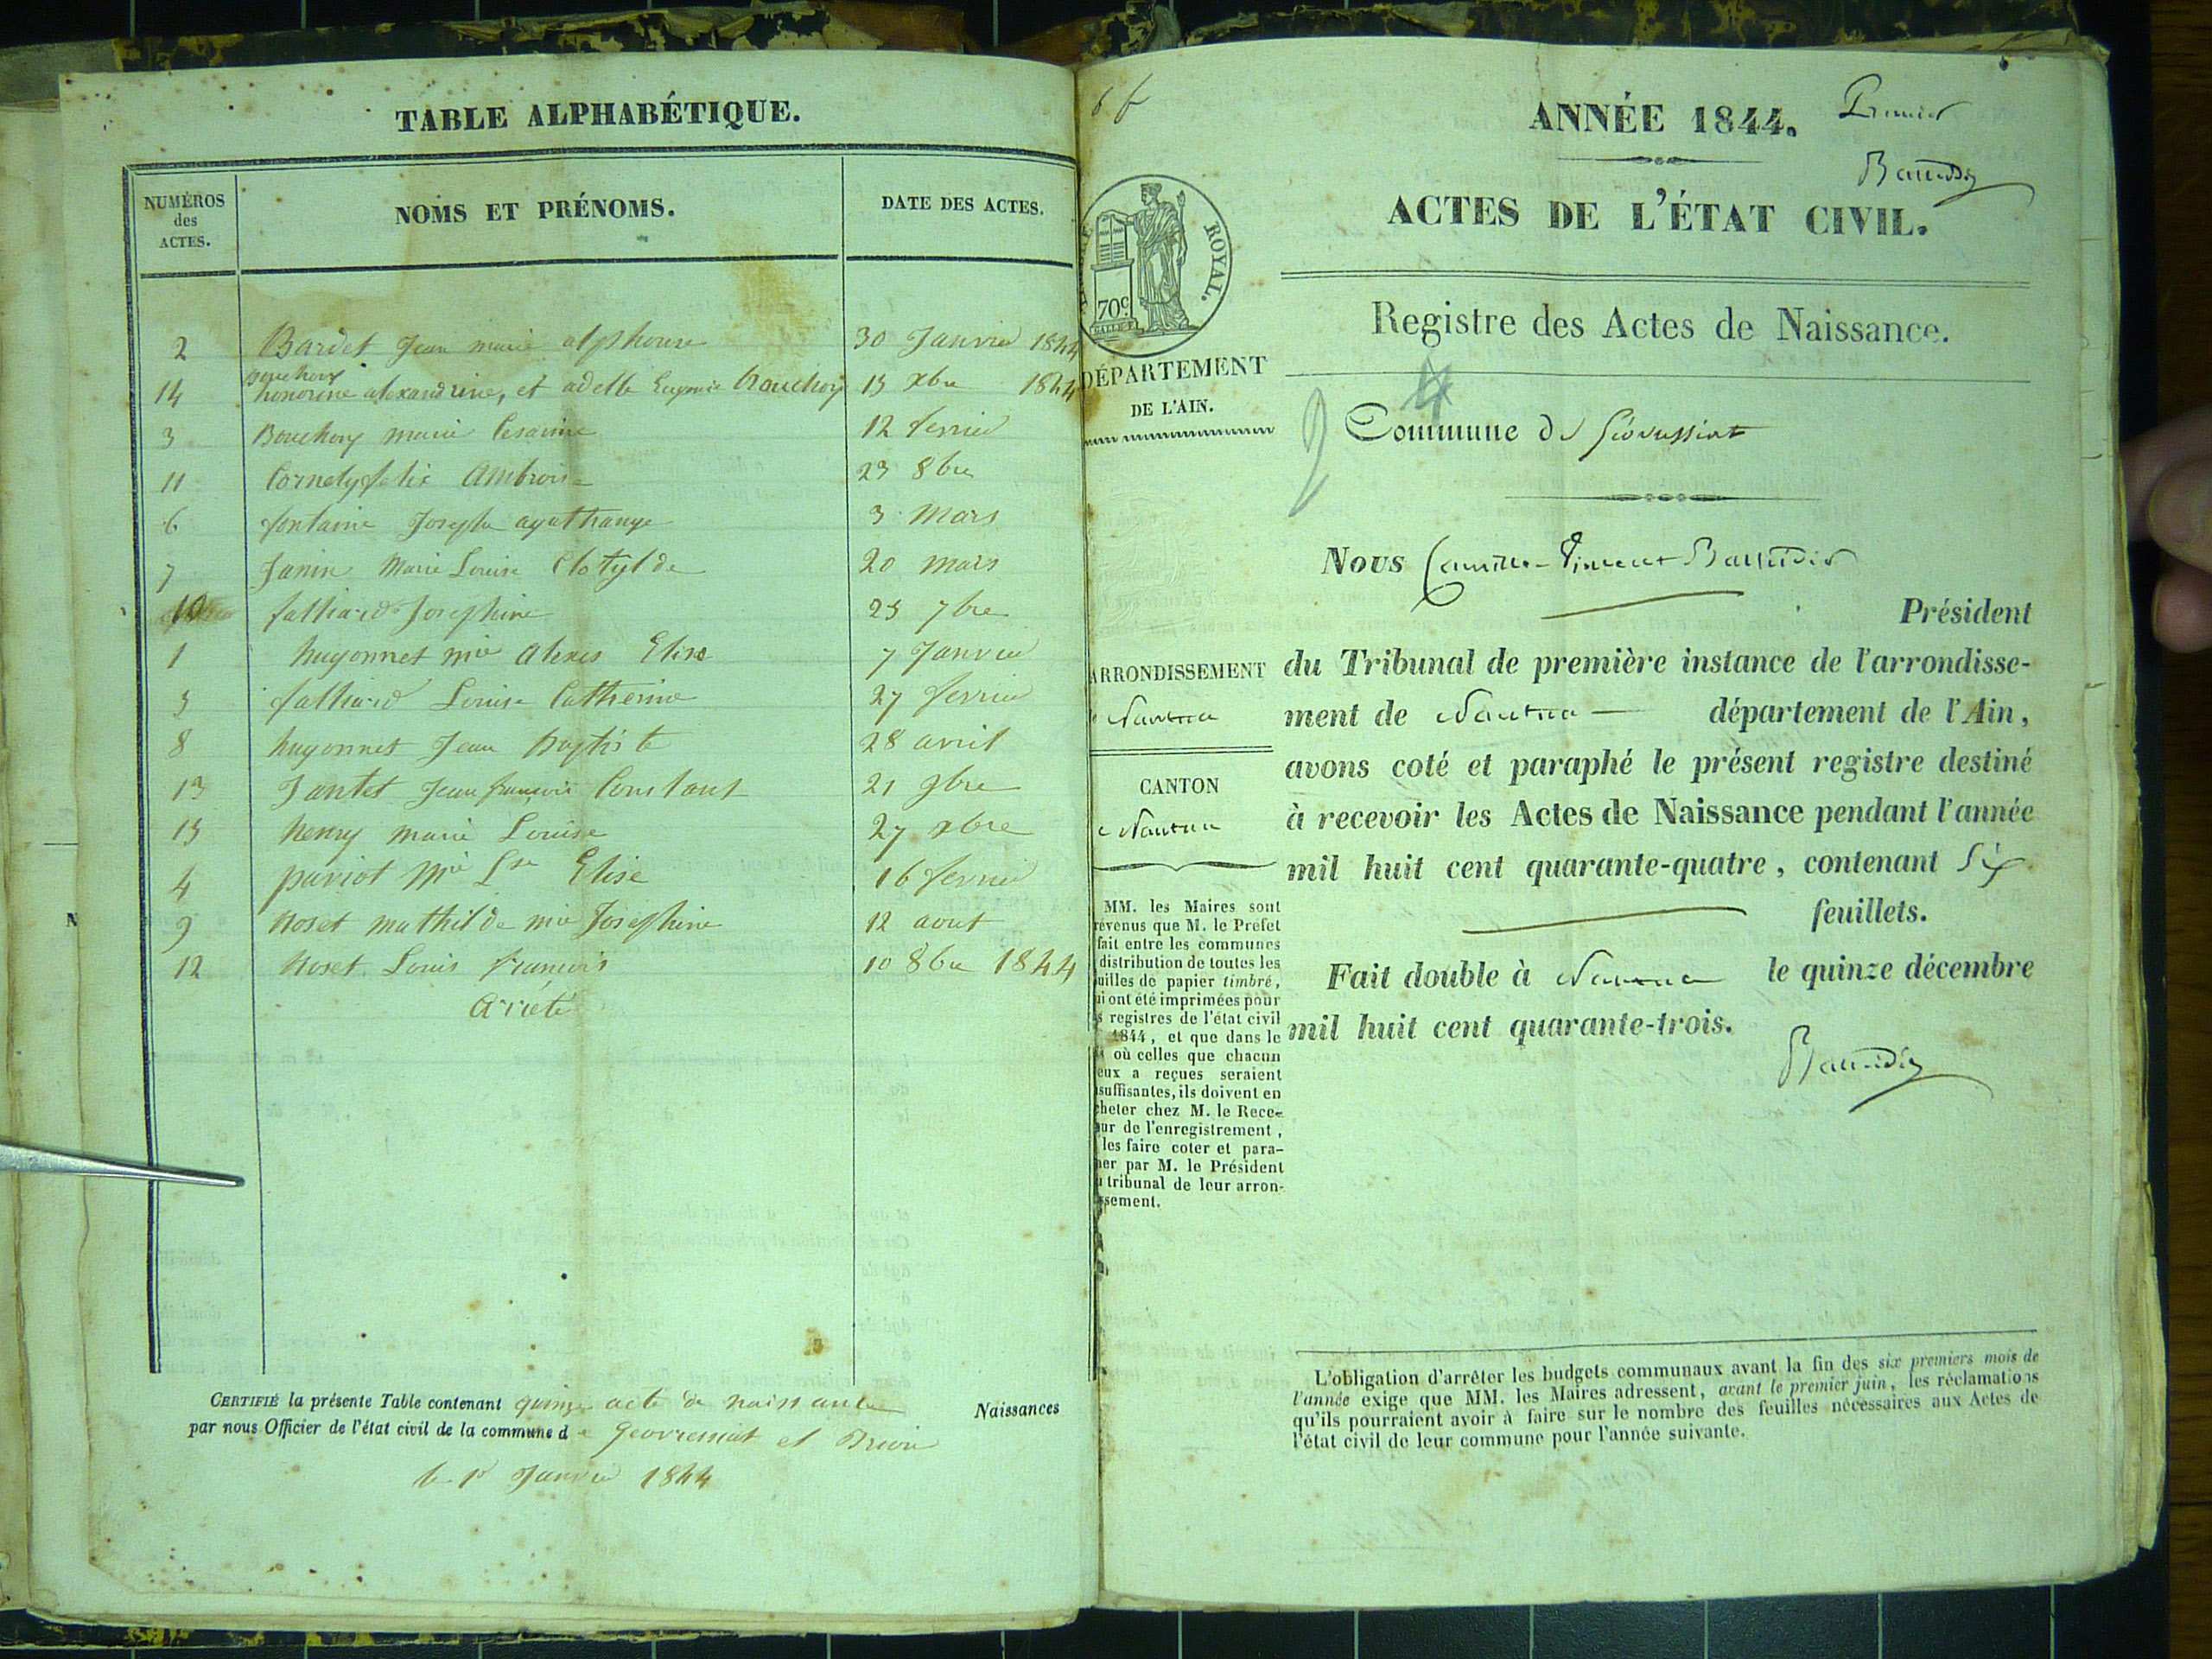 TABLE ALPHABÉTIQUE.
NUMÉROS des ACTES.
NOMS ET PRÉNOMS.
DATE DES ACTES.
2 Bardet Jean marie alphonse 30 Janvier 1844
Bouchory
14 honorine alexandrine, et adelle Eugenie Bouchory 15 xbre 1844
3 Bouchory marie Cesarine 12 fevrier
11 Cornety felix Ambroise 23 8bre
6 fontaine Joseph agathange 3 Mars
7 Janin Marie Louise Clotylde 20 mars
10 falliard Josephine 25 7bre
1 hugonnet mie Alexis Elise 7 Janvier
5 falliard Louise Catherine 27 fevrier
8 hugonnet Jean Baptiste 28 avril
13 Jantet Jean françois Constant 21 9bre
15 henry marie Louise 27 xbre
4 pariot mie Lse Elise 16 fevrier
9 Noset mathilde mie Josephine 12 aout
12 Noset Louis francois 10 8bre 1844
Arreté
CERTIFIÉ la présente Table contenant quinze acte de naissance Naissances
par nous Officier de l'état civil de la commune de Geovressiat et
le 1er Janvier 1844
ANNÉE 1844.
Premier
ACTES DE L'ÉTAT CIVIL.
ROYAL.
70c
Registre des Actes de Naissance.
DÉPARTEMENT
DE L'AIN.
Commune de Géovressiat
Nous Camille-Vincent
Président
ARRONDISSEMENT
Nantua
du Tribunal de première instance de l'arrondisse-
ment de Nantua département de l'Ain,
avons coté et paraphé le présent registre destiné
CANTON
Nantua
à recevoir les Actes de Naissance pendant l'année
mil huit cent quarante-quatre, contenant six
feuillets.
Fait double à Nantua le quinze décembre
mil huit cent quarante-trois.
MM. les Maires sont
révenus que M. le Préfet
fait entre les communes
distribution de toutes les
uilles de papier timbré,
ui ont été imprimées pour
s registres de l'état civil
1844, et que dans le
où celles que chacun
eux a reçues seraient
suffisantes, ils doivent en
cheter chez M. le Rece-
ur de l'enregistrement,
les faire coter et para-
her par M. le Président
tribunal de leur arron-
ssement.
L'obligation d'arrêter les budgets communaux avant la fin des six premiers mois de
l'année exige que MM. les Maires adressent, avant le premier juin, les réclamations
qu'ils pourraient avoir à faire sur le nombre des feuilles nécessaires aux Actes de
l'état civil de leur commune pour l'année suivante.